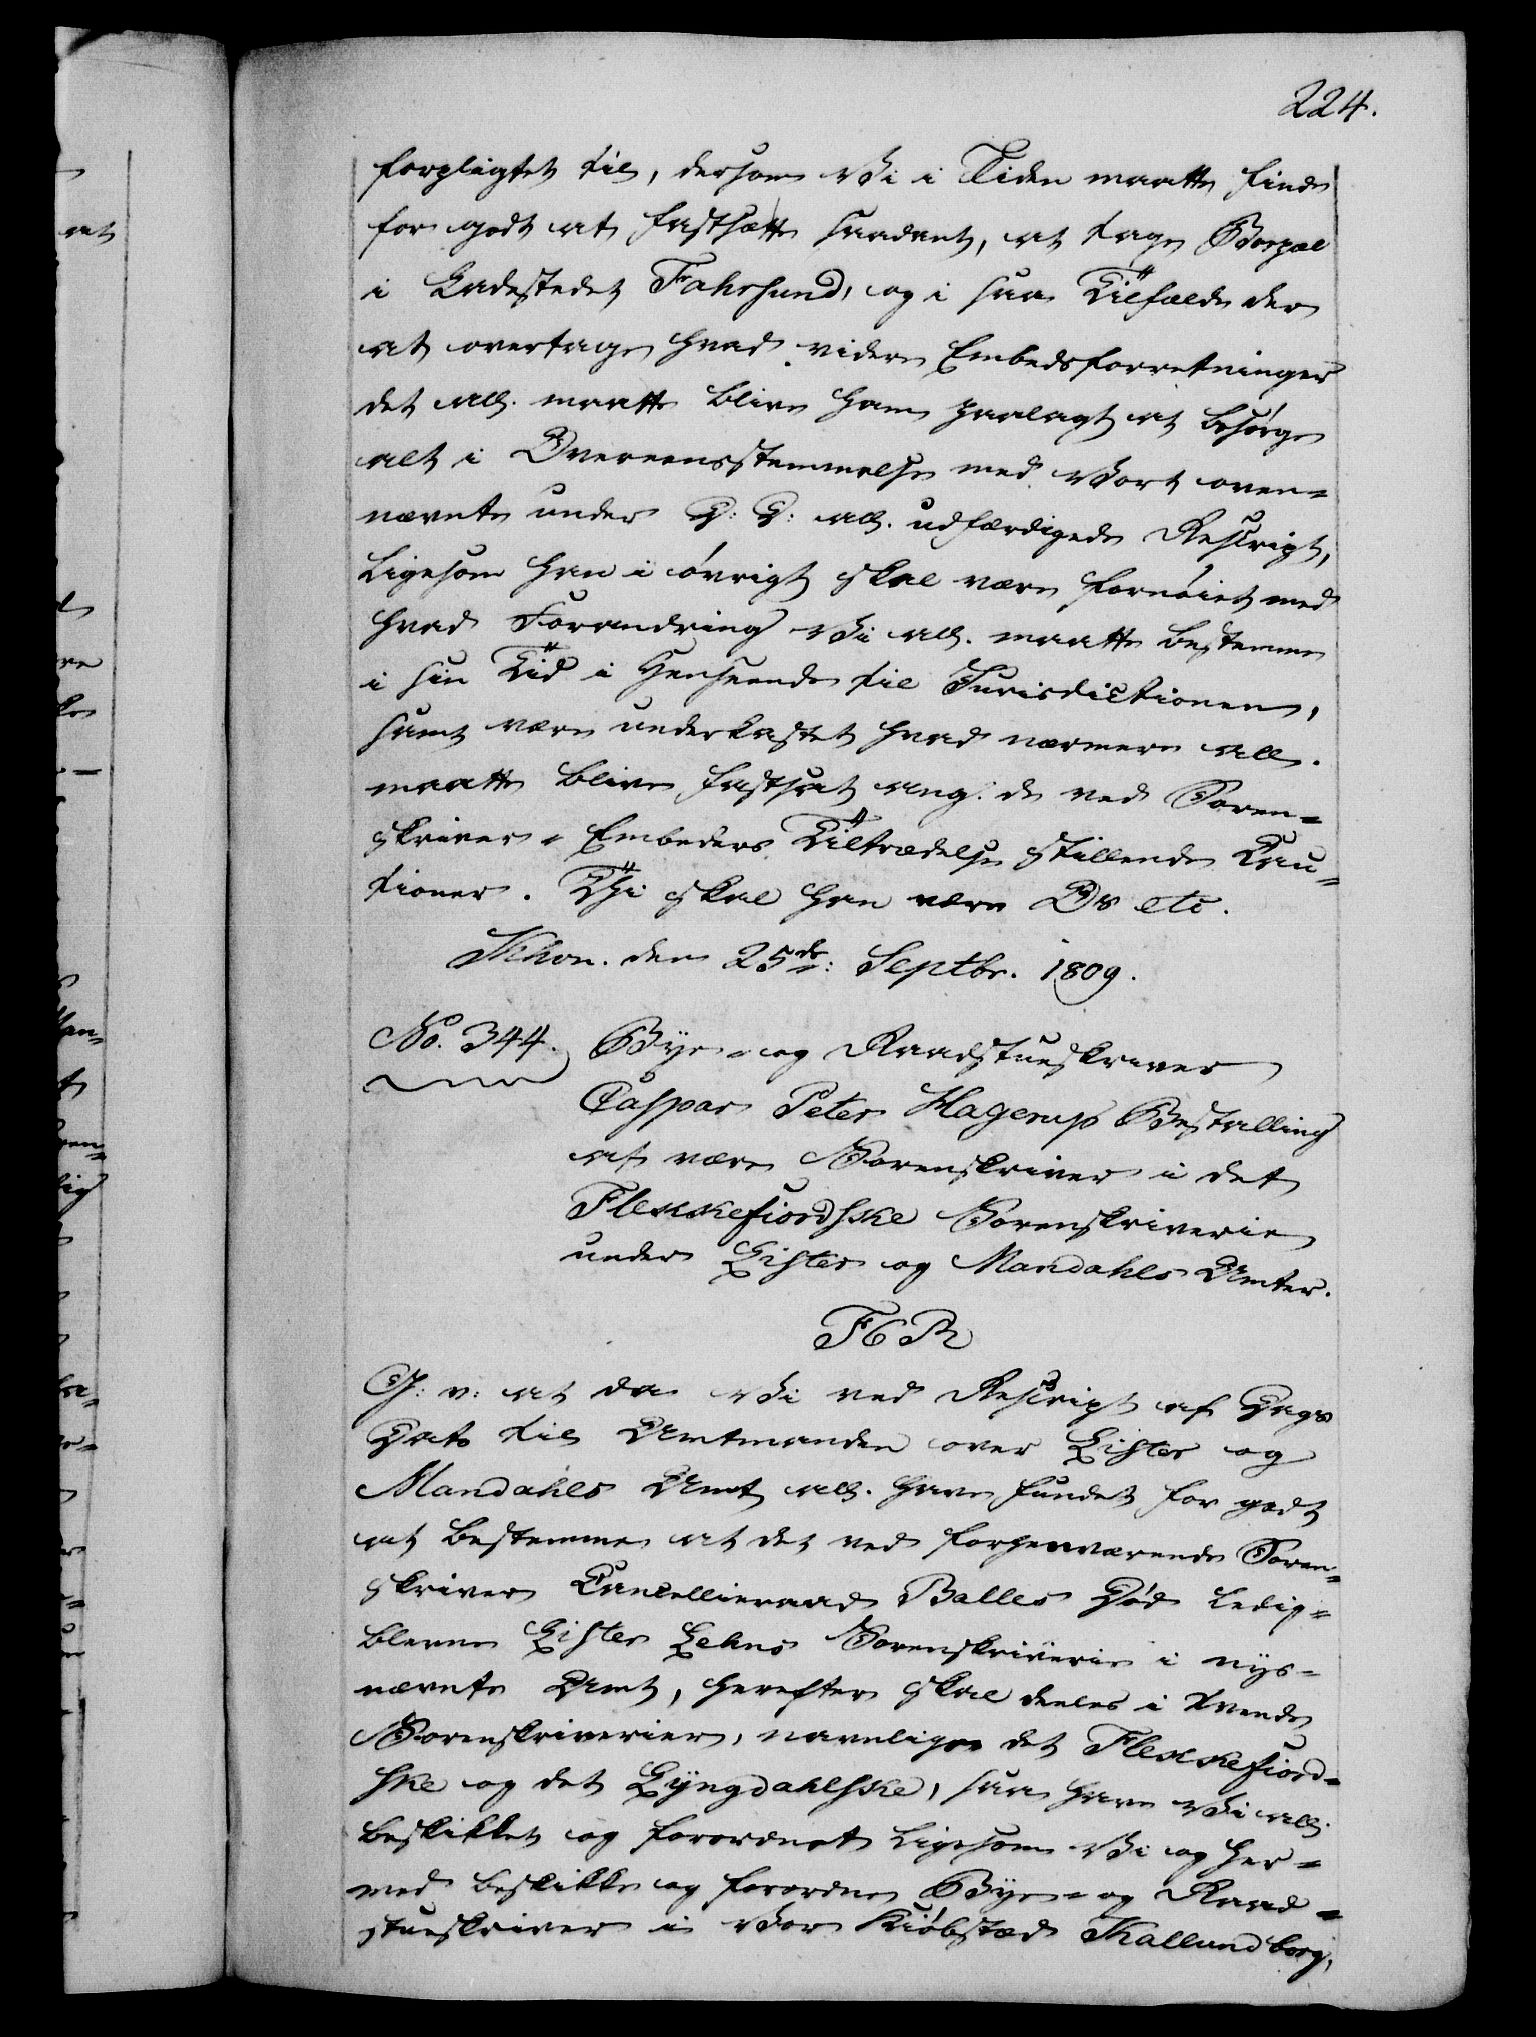 224.
forpligtet til, dersom Vi i Tiden maatte finde
for godt at fastsætte saadant, at tage Boepæl
i Ladestedet Fahrsund, og i saa Tilfælde der
at overtage hvad videre Embedsforretninger
det all. maatte blive ham paalagt at besørge
alt i Overeensstemmelse med Vort oven-
nævnte under D: D: all. udfærdigede Rescript,
Ligesom han i øvrigt skal være fornøiet med
hvad Forandring Vi all. maatte bestemme
i sin Tid i Henseende til Jurisdictionen,
samt være underkastet hvad nærmere all.
maatte blive fastsat ang: de ved Soren-
skriver-Embeders Tiltrædelse stillende Cau-
tioner. Thi skal han være Os etc.
Khvn. den 25de: Septbr. 1809.
No. 344. Bye- og Raadstueskriver
Caspar Peter Hagerup Bestalling
at være Sorenskriver i det
Flekkefiordske Sorenskriverie
under Lister og Mandahls Amter.
F6R
G: v: at da Vi ved Rescript af Dags
Dato til Amtmanden over Lister og
Mandahls Amt all. have fundet for godt
at bestemme at det ved forhenværende Soren-
skriver Cancellieraad Balles Død ledig-
blevne Lister Lehns Sorenskriverie i nys-
nævnte Amt, herefter skal deeles i tvende
Sorenskriverier, navnligen det Flekkefiord-
ske og det Lyngdahlske, saa have Vi all.
beskikket og forordnet ligesom Vi og her-
med beskikke og forordne Bye- og Raad-
stueskriver i Vor Kiøbstæd Kallundborg,